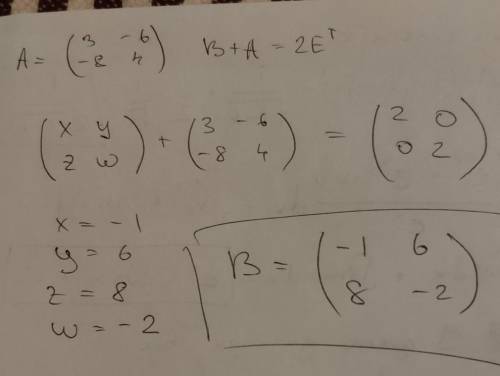 A = (3 -6
-8 4) B + A = 2E^T
(x y
z w) + (3 -6
-8 4) = (2 0
0 2)
x = -1
y = 6
z = 8
w = -2
B = (-1 6
8 -2)